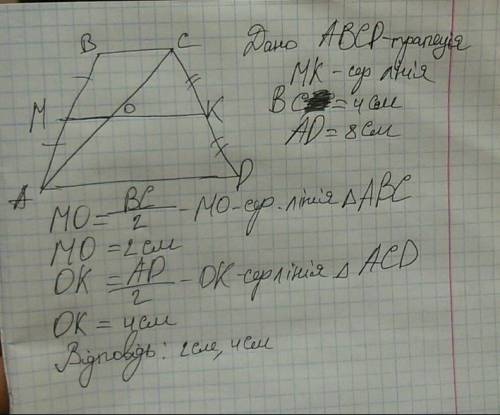 B C
Дано ABCD-трапеція
MK - сер лінія
M O K
BC = 4 см
AD = 8 см
A D
MO = BC/2 - MO-сер. лінія △ ABC
MO = 2 см
OK = AD/2 - OK-сер лінія △ ACD
OK = 4 см
Відповідь: 2см, 4см